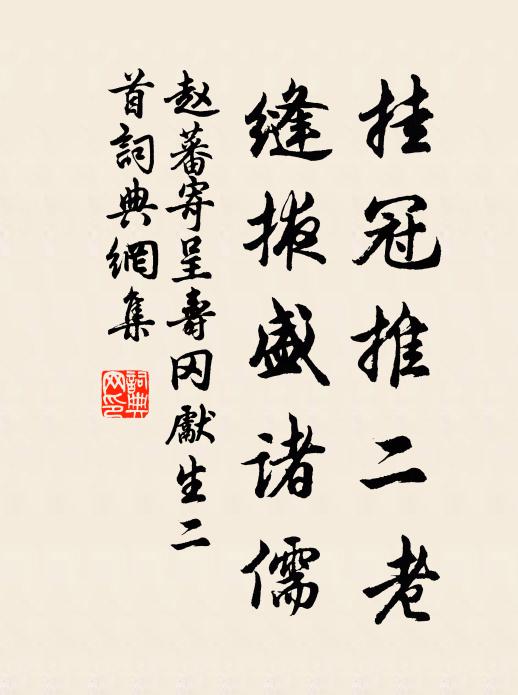 挂冠推二老
縫掖盛诸儒
赵蕃寄呈壽冈獻生二
首詞典網集
詞典
网印